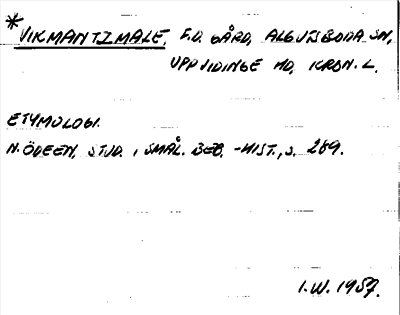 *VIKMANTZMALE, F.D. GÅRD, ALGUTSBODA SN,
UPPVIDINGE HD, KRON. L.
ETYMOLOGI.
N. ÖDEEN, STUD. I SMÅL. BEB. -HIST., S. 289.
I.W. 1957.